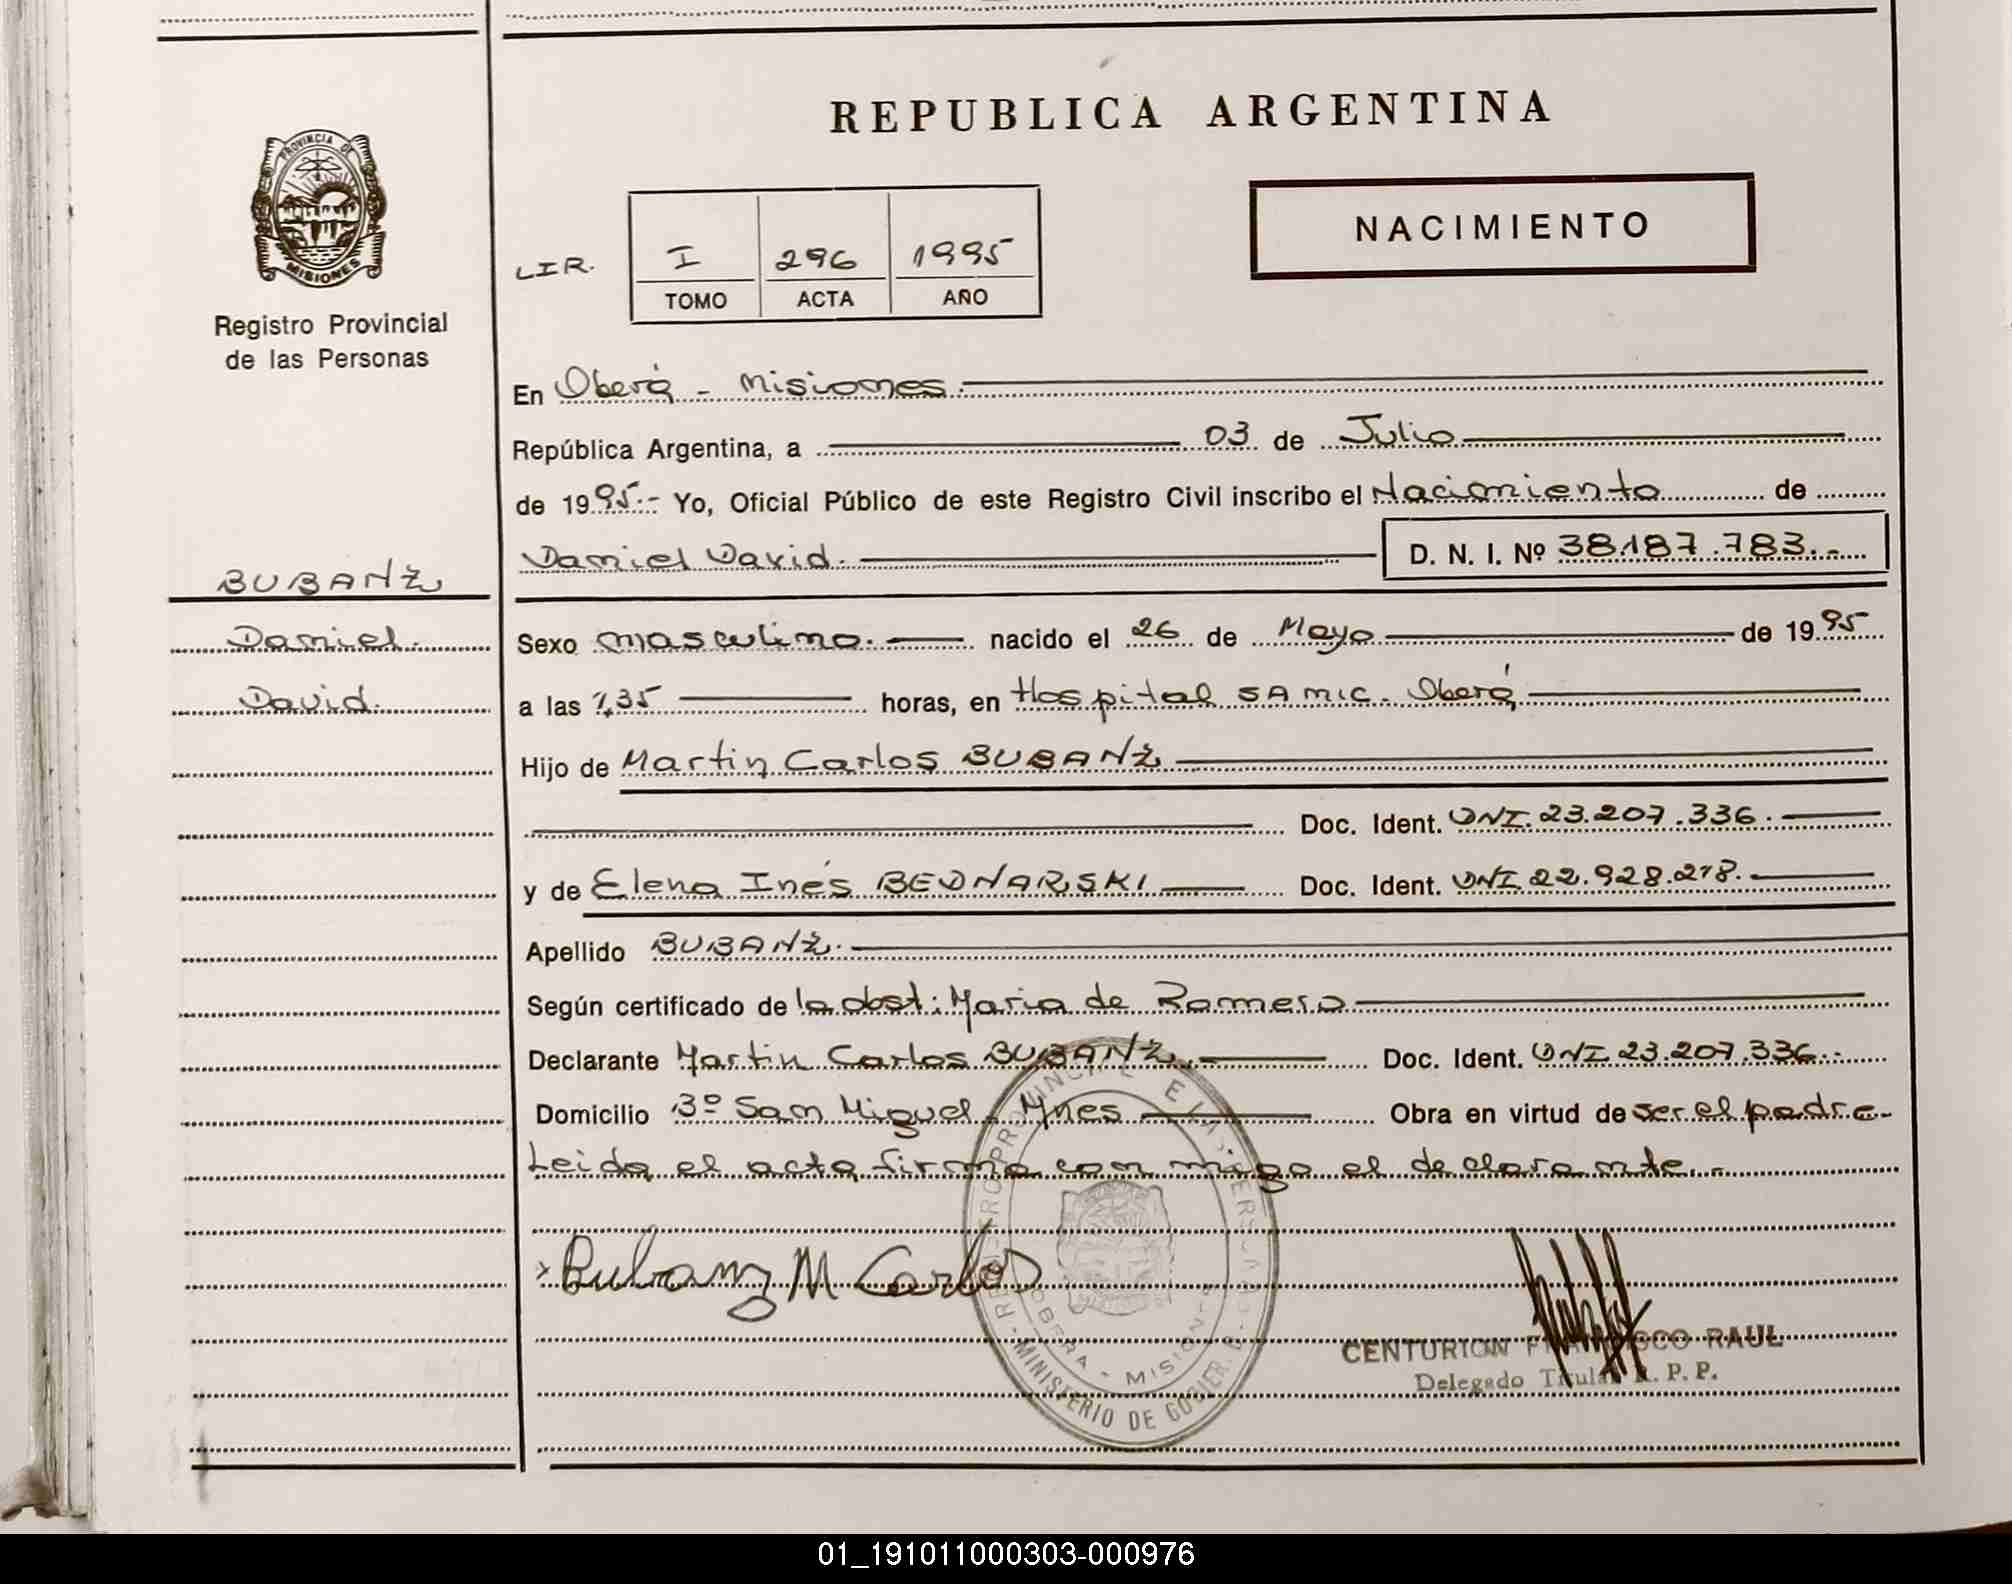 REPUBLICA ARGENTINA
PROVINCIA DE
MISIONES
Registro Provincial
de las Personas
NACIMIENTO
LIR.
I 296 1995
TOMO ACTA AÑO
En Oberá - Misiones.
República Argentina, a 03 de Julio
de 1995.- Yo, Oficial Público de este Registro Civil inscribo el Nacimiento de
Daniel David. D. N. I. Nº 38.187.783.-
BUBANZ
Daniel.
David.
Sexo masculino. nacido el 26 de Mayo de 1995
a las 7,35 horas, en Hospital SAMIC. Oberá
Hijo de Martin Carlos BUBANZ
Doc. Ident. DNI.23.207.336.
y de Elena Inés BEDNARSKI Doc. Ident. DNI.22.928.218.
Apellido BUBANZ.
Según certificado de la obst: Maria de Romero
Declarante Martin Carlos BUBANZ. Doc. Ident. DNI 23.207.336.-
Domicilio 3º San Miguel, Mnes Obra en virtud de ser el padre-
Leida el acta firma con migo el declarante.-
Bubanz M Carlos
REGISTRO PROVINCIAL DE LAS PERSONAS
OBERA - MISIONES
MINISTERIO DE GOBIER.
CENTURION FRANCISCO RAUL
Delegado Titular R. P. P.
01_191011000303-000976